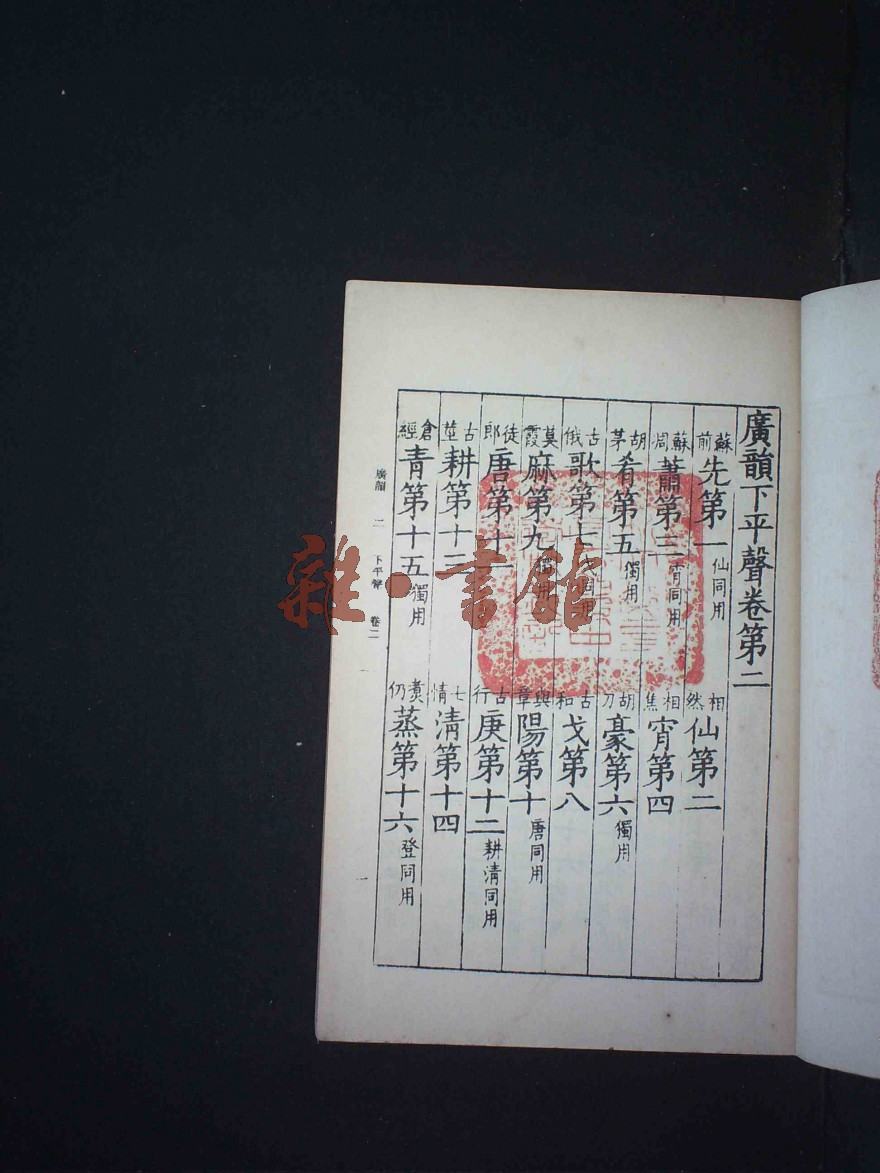 廣韻下平聲卷第二
蘇前先第一仙同用　相然仙第二
蘇凋蕭第三宵同用　相焦宵第四
胡茅肴第五獨用　胡刀豪第六獨用
古俄歌第七戈同用　古和戈第八
莫霞麻第九獨用　與章陽第十唐同用
徒郎唐第十一　古行庚第十二耕清同用
古莖耕第十三　七情清第十四
倉經青第十五獨用　煑仍蒸第十六登同用
廣韻　二　下平聲　卷二　一
雜·書館